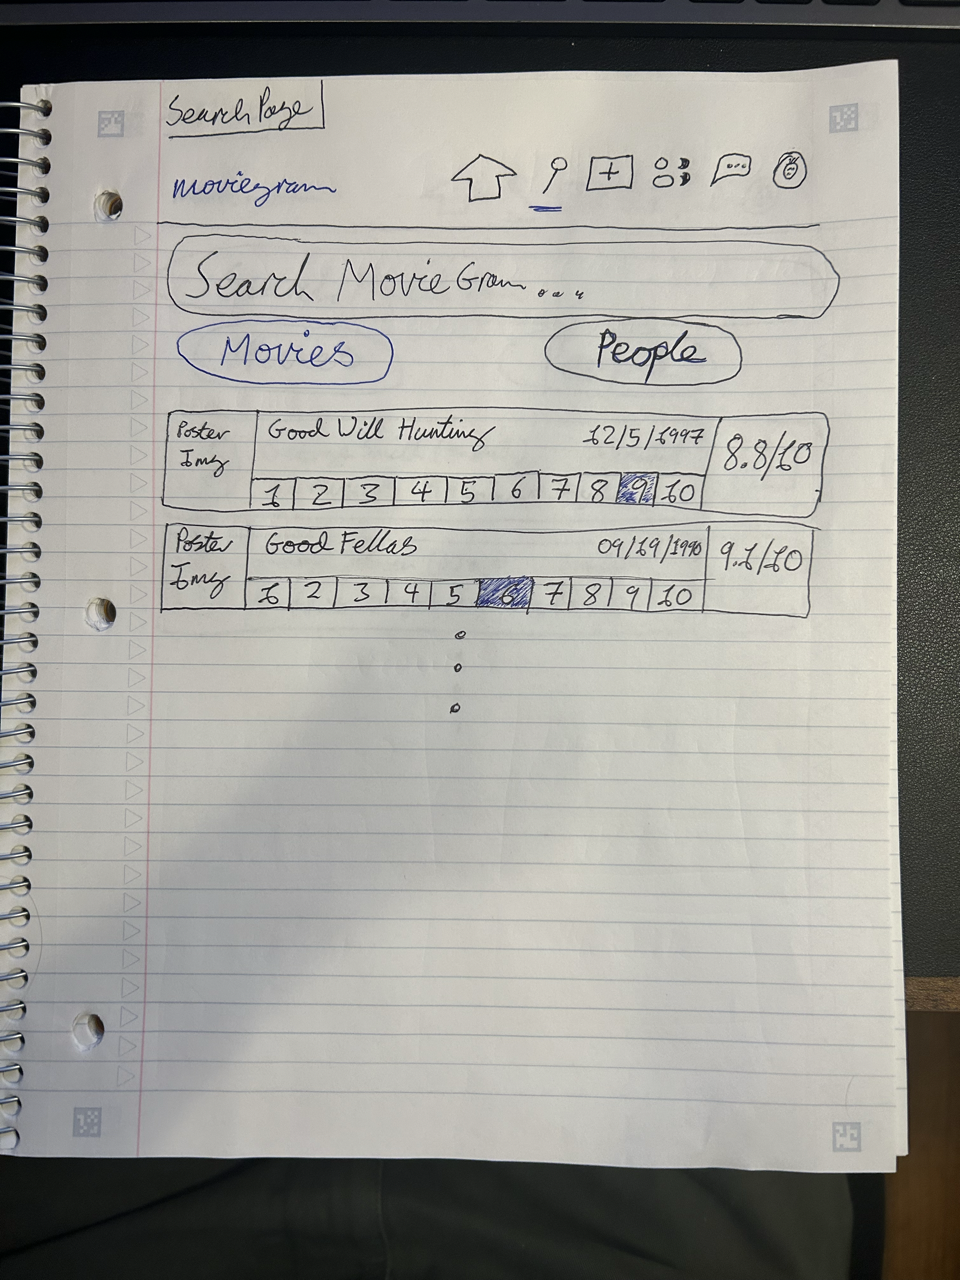 Search Page
moviegram
Search MovieGram...
Movies
People
Poster Img
Good Will Hunting 12/5/1997
8.8/10
1 2 3 4 5 6 7 8 9 10
Poster Img
Good Fellas 09/19/1990
9.1/10
1 2 3 4 5 6 7 8 9 10